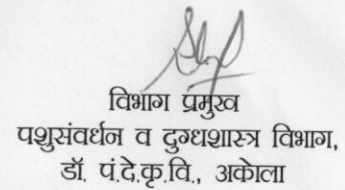 विभाग प्रमुख
पशुसंवर्धन व दुग्धशास्त्र विभाग,
डॉ. पं.दे.कृ.वि., अकोला